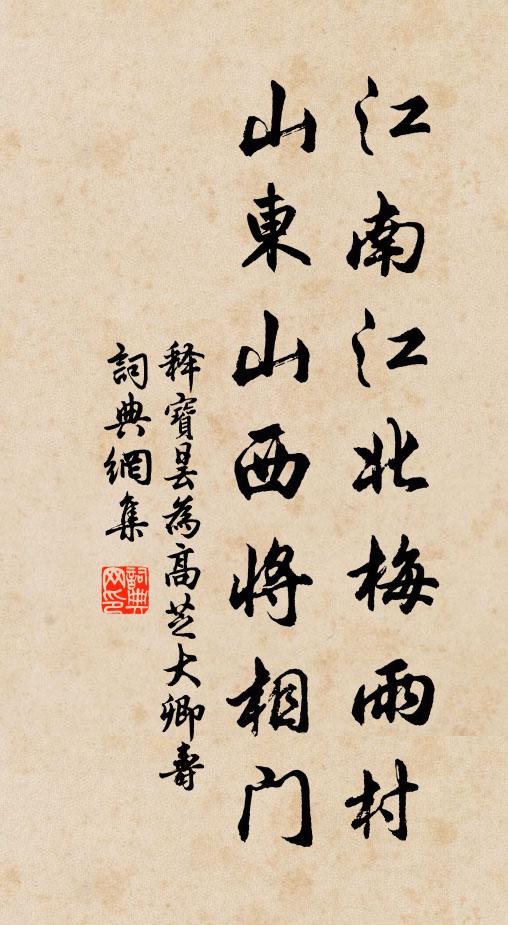 江南江北梅雨村
山東山西將相門
释寶曇為高芝大卿壽
詞典網集
詞典网印